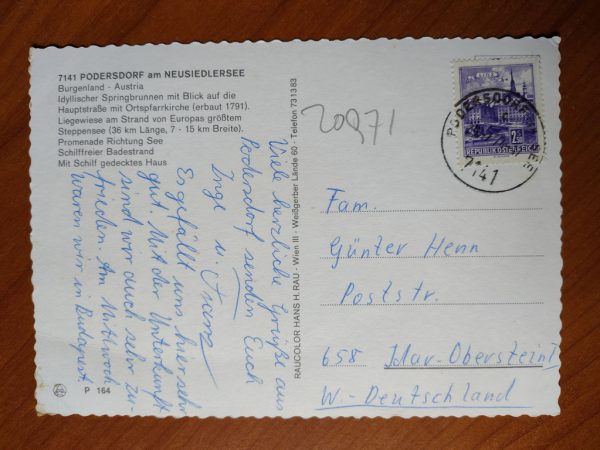 7141 PODERSDORF am NEUSIEDLERSEE
Burgenland - Austria
Idyllischer Springbrunnen mit Blick auf die
Hauptstraße mit Ortspfarrkirche (erbaut 1791).
Liegewiese am Strand von Europas größtem
Steppensee (36 km Länge, 7 - 15 km Breite).
Promenade Richtung See
Schilffreier Badestrand
Mit Schilf gedecktes Haus
Viele herzliche Grüße aus
Podersdorf senden Euch
Inge u. Franz
Es gefällt uns hier sehr
gut. Mit der Unterkunft
sind wir auch sehr zu-
frieden. Am Mittwoch
waren wir in Budapest.
P 164
RAUCOLOR HANS H. RAU - Wien III - Weißgerber Lände 60 - Telefon 73 13 83
20971
2.50
REPUBLIK ÖSTERREICH
PODERSDORF
7141
Fam.
Günter Henn
Poststr.
658 Idar-Oberstein 1
W.-Deutschland